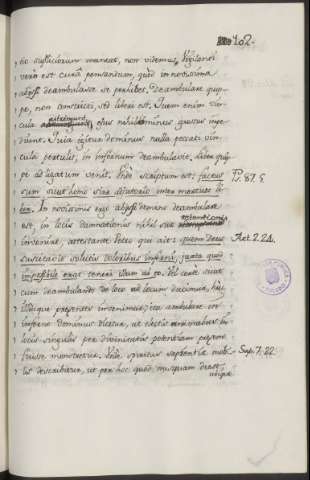 102.
tio suppliciorum maneat, non videmus, Vigilanti
vero est cura pensandum, quod in novissima
abyssi deambulasse se perhibet. Deambulare quip-
pe, non constricti, sed liberi est. Quem enim vin-
cula astringunt, ejus nihilominus gressus impe-
diunt. Quia igitur dominus nulla peccati vin-
cula pertulit, in infernum deambulavit. Liber quip-
pe ad ligatum venit. Unde scriptum est: factus
sum sicut homo sine adjutorio inter mortuos li-
ber. In novissimis ergo abyssi deambulare
est, in locis damnationis nihil suae retentionis
invenire, attestante Petro qui ait: quem Deus
suscitavit solutis doloribus inferni, juxta quod
impossibile erat teneri illum ab eo. Vel certe sicut
cum deambulando de loco ad locum ducimur, hic
illucque praesentes invenimur; ita ambulare in
inferno dominus dicitur, ut electis animabus in
locis singulis per divinitatis potentiam
fuisse monstraretur. Unde spiritus sapientiae mobi-
lis describitur, ut per hoc quod nusquam deest
P. 87. 5
Act. 2. 24.
Sap. 7. 22.